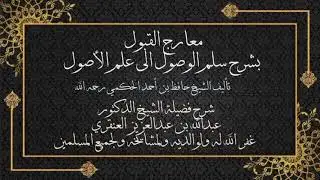 معارج القبول
بشرح سلم الوصول الى علم الأصول
تأليف الشيخ حافظ بن أحمد الحكمي رحمه الله
شرح فضيلة الشيخ الدكتور
عبدالله بن عبدالعزيز العنقري
غفر الله له ولوالديه ولمشائخه ولجميع المسلمين